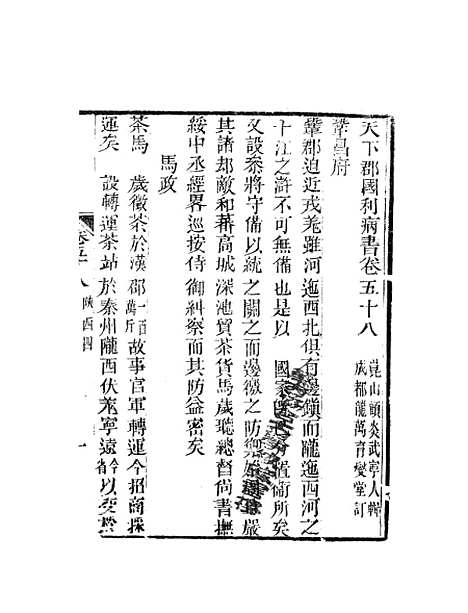 天下郡國利病書卷五十八
崑山顧炎武寧人輯
成都龍萬育燮堂訂
鞏昌府
鞏郡迫近戎羌雖河迤西北俱有邊鎮而隴迤西河之
十江之滸不可無備也是以 國家 分置衛所矣
又設叅將守備以統之關之而邊徼之防禦 嚴
其諸却敵和蕃高城深池貿茶貨馬歲聽總督尚書撫
綏中丞經界巡按侍御糾察而其防益密矣
馬政
茶馬 歲徵茶於漢郡一百萬斤故事官軍轉運今招商採
運矣 設轉運茶站於秦州隴西伏羌寧遠今省以
卷五十八 陝西四
一